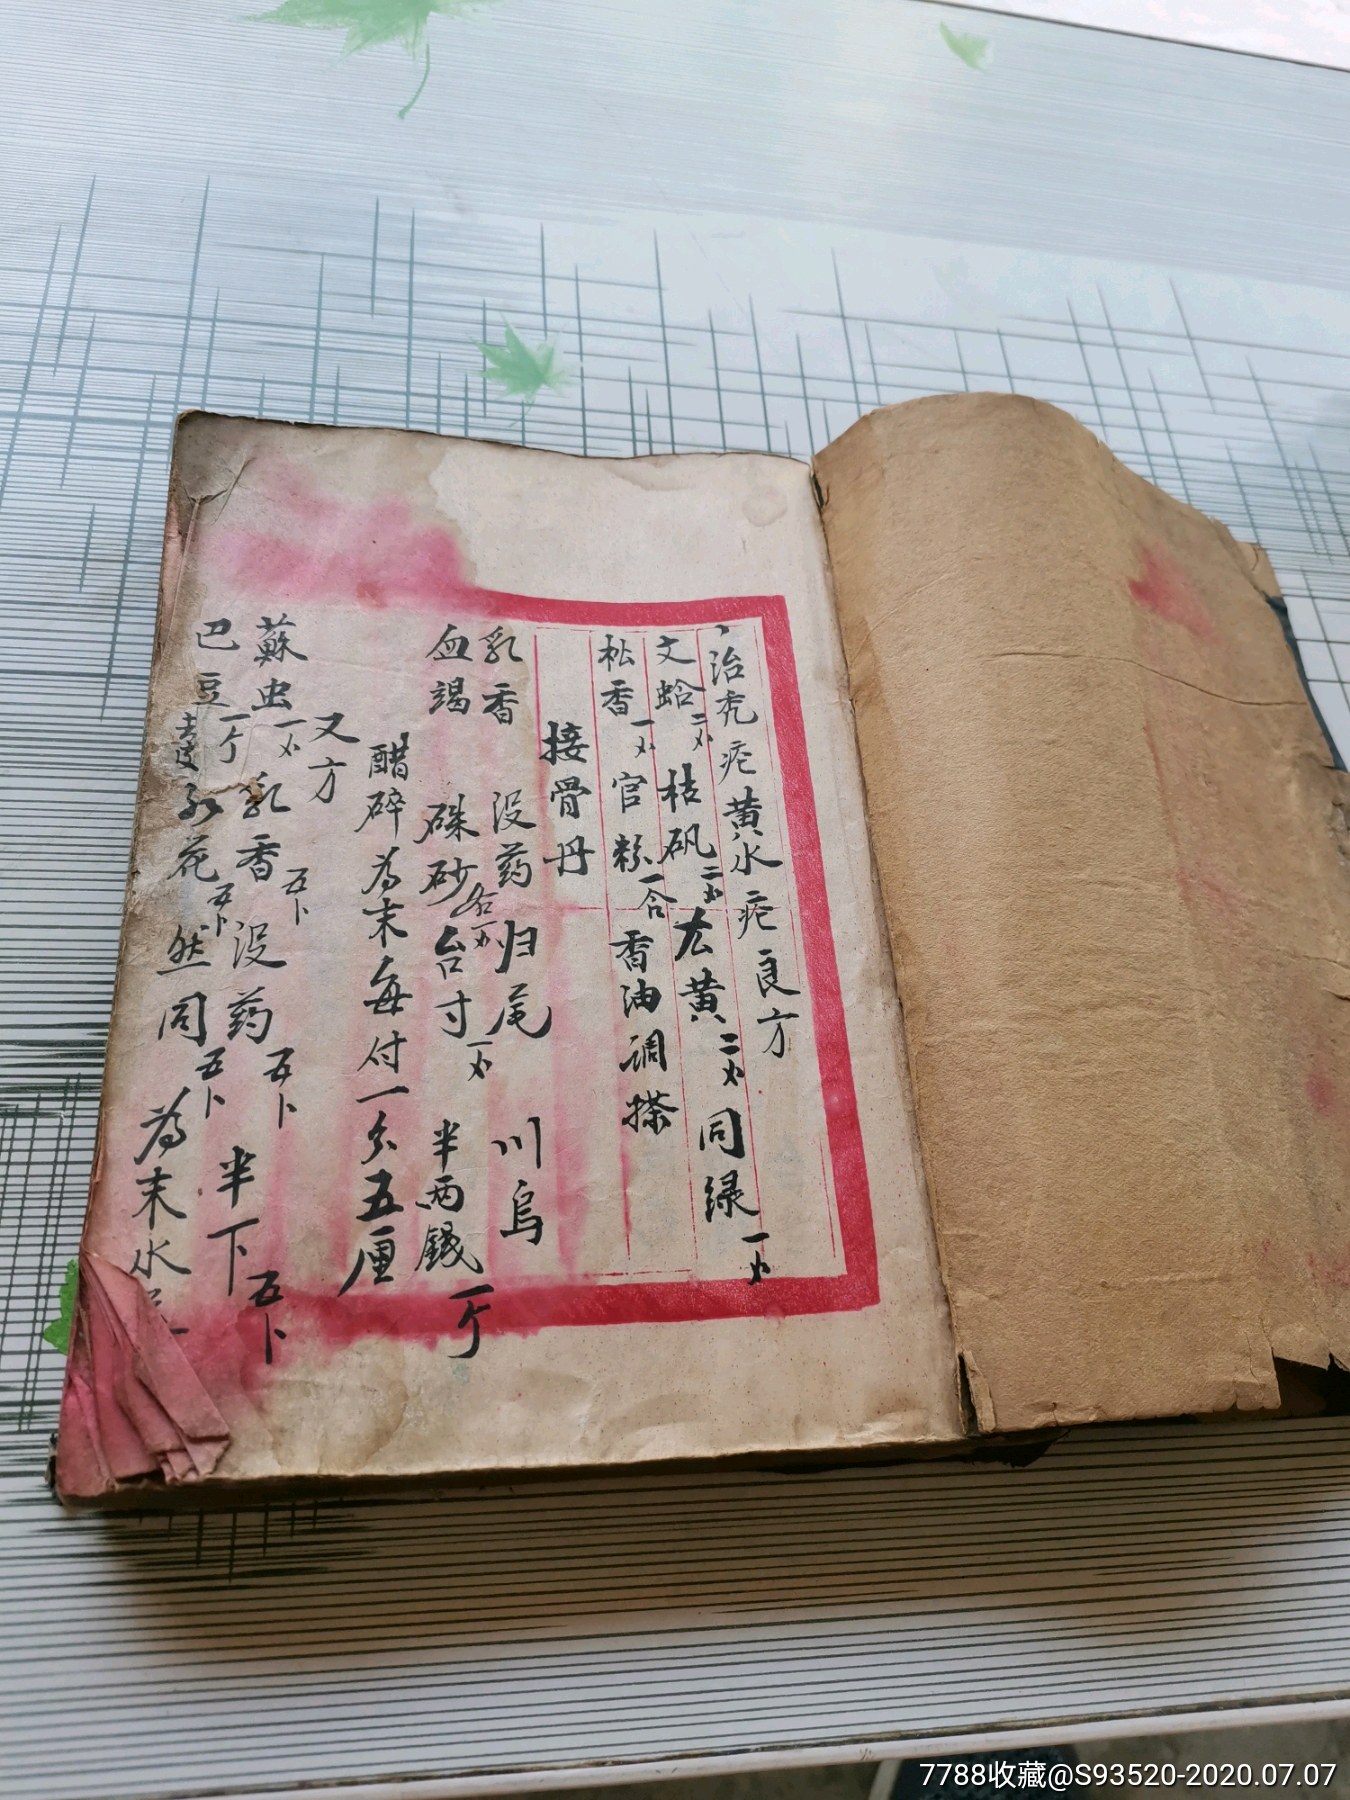 治禿疮黄水疮良方
文蛤二刄 枯矾二刄 大黄二刄 同绿一刄
松香一刄 官粉一合 香油调搽
接骨丹
乳香 没药 归尾 川乌
血竭 硃砂各一刄 台寸一刄 半两錢一个
醋碎为末每付一分五厘
又方
蘇虫一刄 乳香五卜 没药五卜 半下五卜
巴豆一个去皮 红花五卜 然同五卜 为末水
7788收藏@S93520-2020.07.07